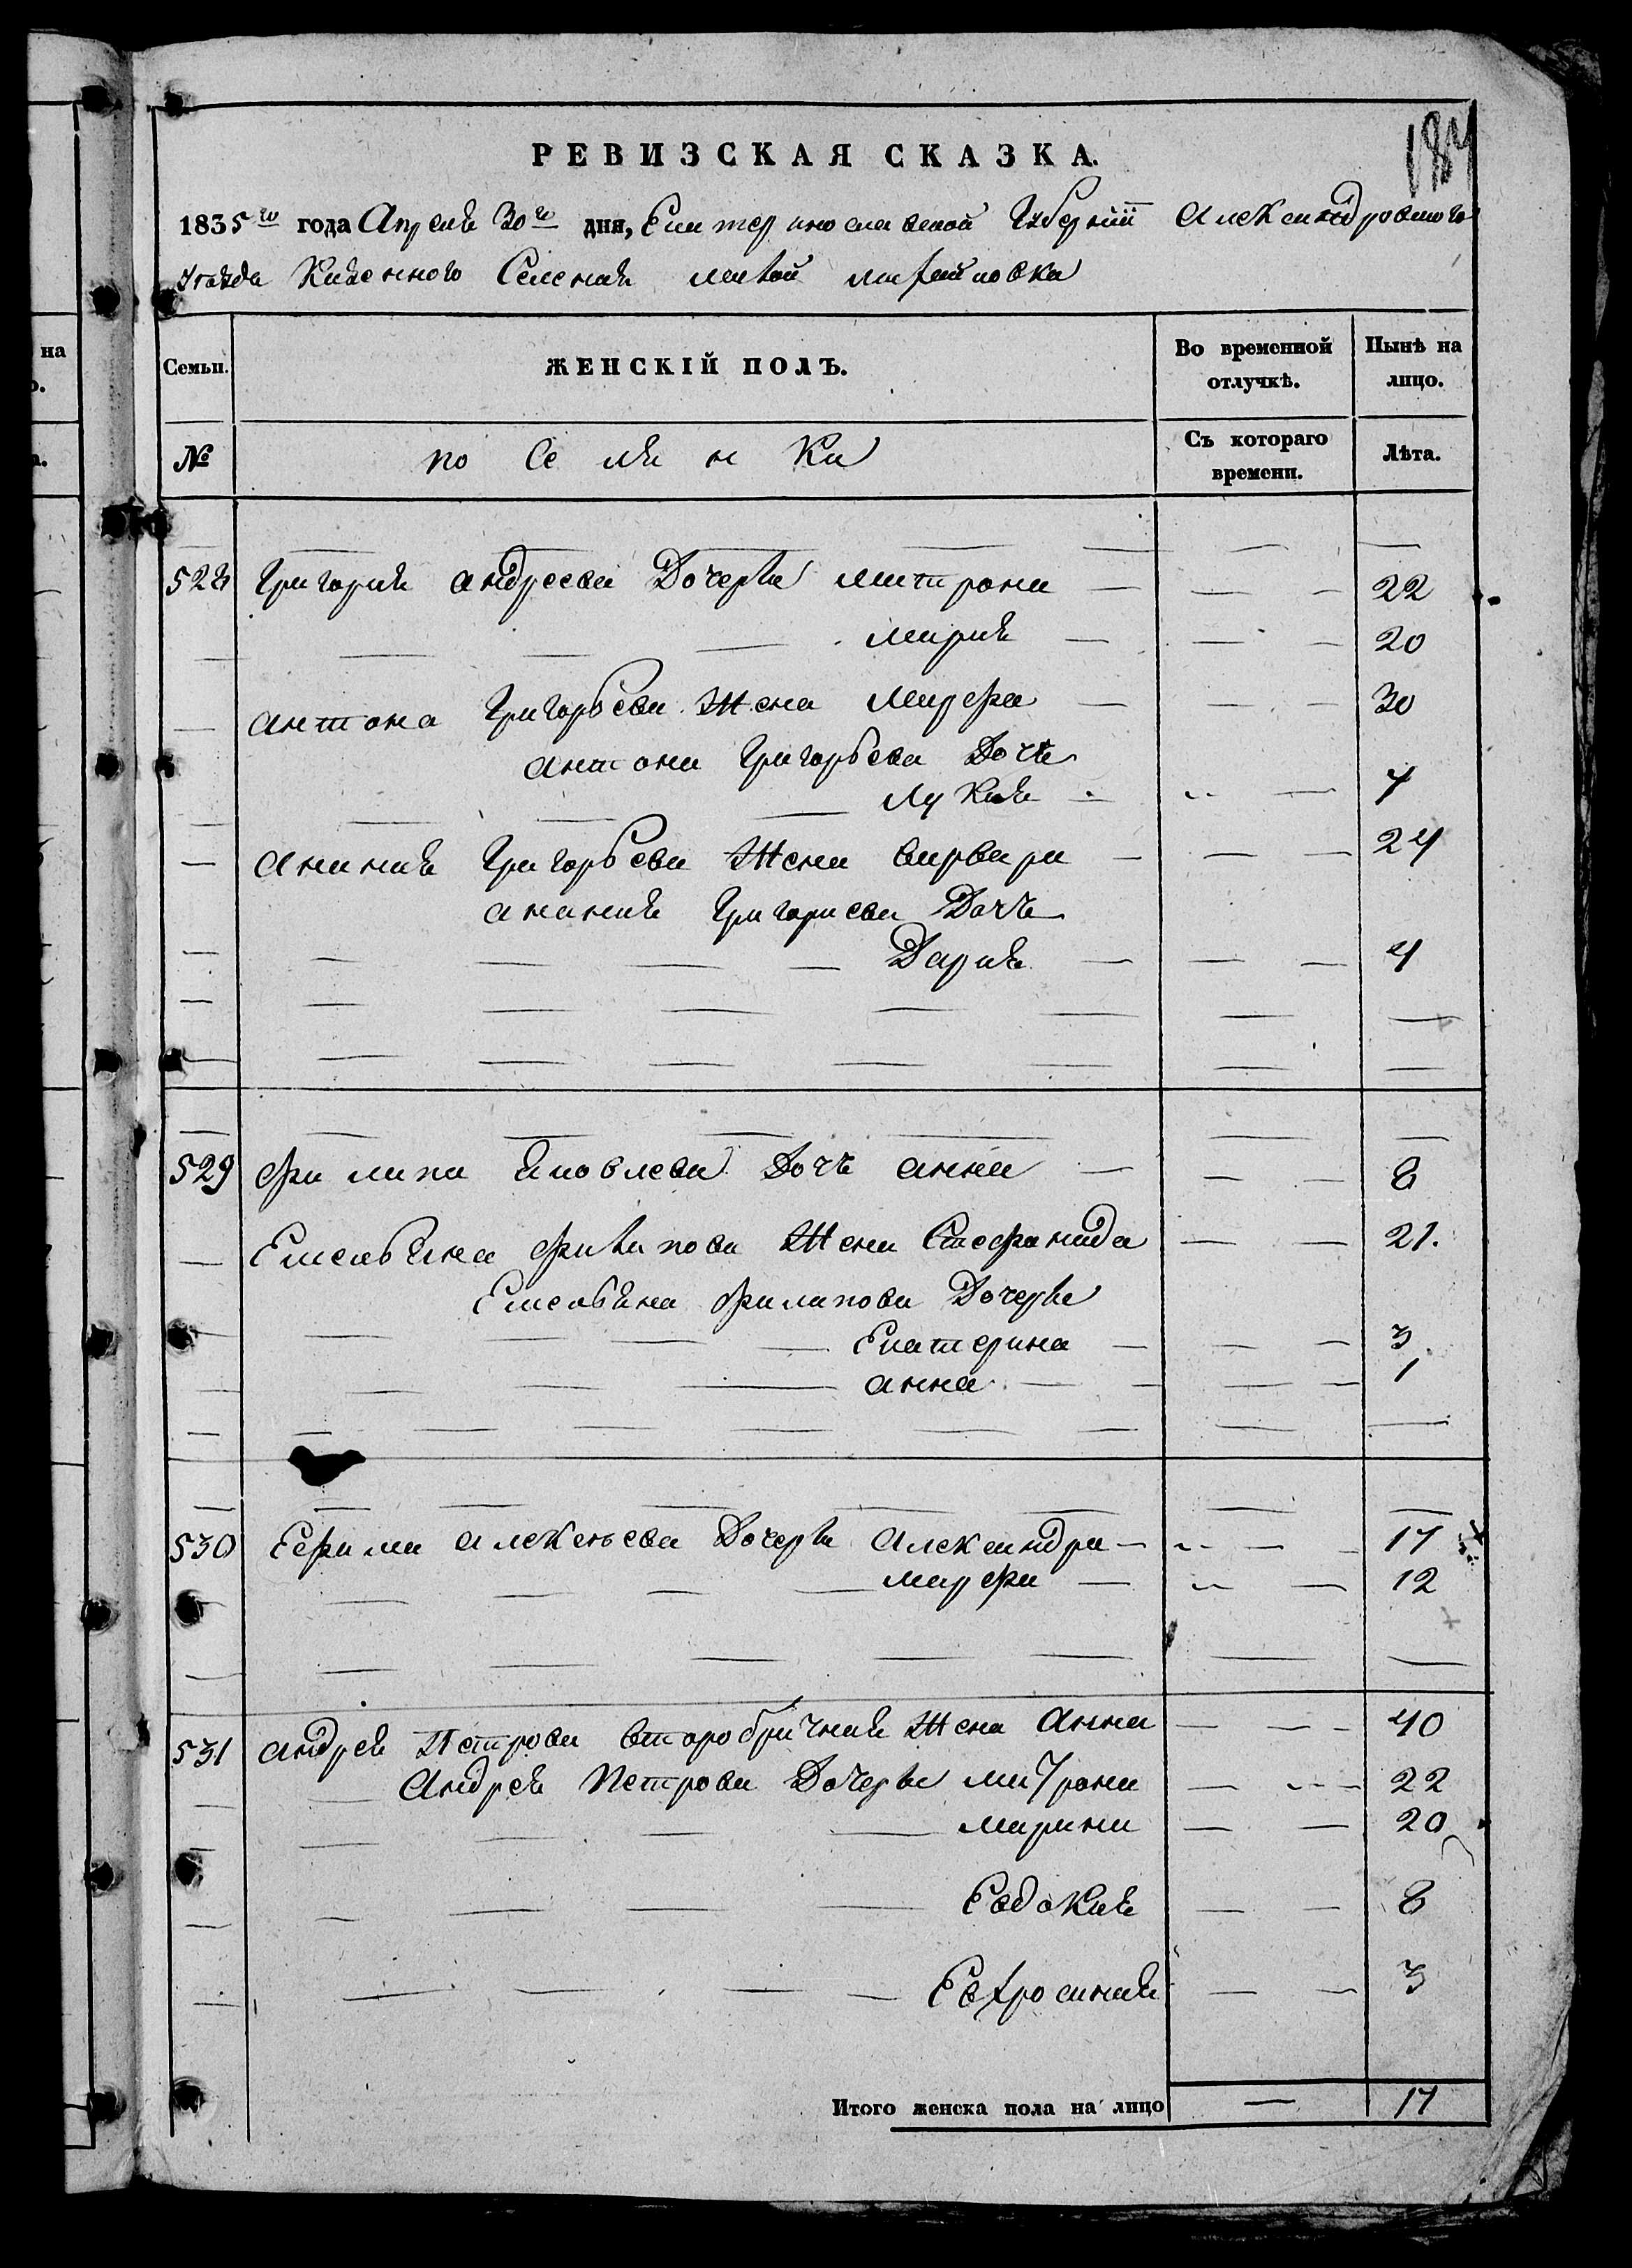 на
о.
а.
184
РЕВИЗСКАЯ СКАЗКА.
1835го года Апреля 30го дня, Екатеринославской Губернии Александровского
Уезда Казенного Селения малой михайловка
Семьи. ЖЕНСКІЙ ПОЛЪ. Во временной отлучкѣ. Нынѣ на лицо.
№ поселянки Съ котораго времени. Лѣта.
528 Григория андреева Дочери матрона 22
мария 20
антона Григорьева Жена марфа 30
антона Григорьева Дочь
Лукия 7
анания Григорьева Жена варвара 24
анания Григориева Дочь
Дария 4
529 филипа Яковлева Дочь анна 8
Емельяна филипова Жена Стефанида 21.
Емельяна филипова Дочери
Екатерина 3
анна 1
530 Ефима алексеева Дочери александра 17
марфа 12
531 андрея Петрова второбрачная Жена Анна 40
Андрея Петрова Дочери матрона 22
марина 20
Евдокия 8
Ефросиния 3
Итого женска пола на лицо — 17